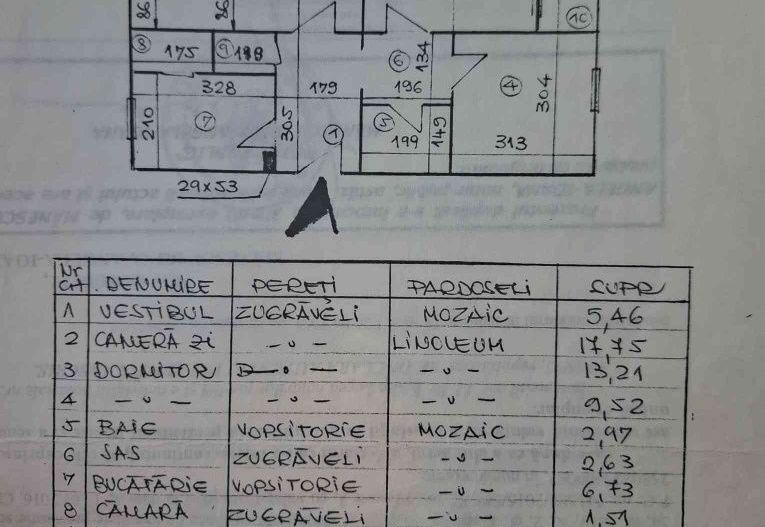 98 98
10
8 175 9 119
6 134
328 179 196 4 304
210 7 305 1 5 149
199 313
29x53
Nr Crt DENUMIRE PEREȚI PARDOSELI SUPR
1 VESTIBUL ZUGRĂVELI MOZAIC 5,46
2 CAMERĂ ZI — " — LINOLEUM 17,75
3 DORMITOR — " — — " — 13,21
4 — " — — " — — " — 9,52
5 BAIE VOPSITORIE MOZAIC 2,97
6 SAS ZUGRĂVELI — " — 2,63
7 BUCĂTĂRIE VOPSITORIE — " — 6,73
8 CĂMARĂ ZUGRĂVELI — " — 1,51